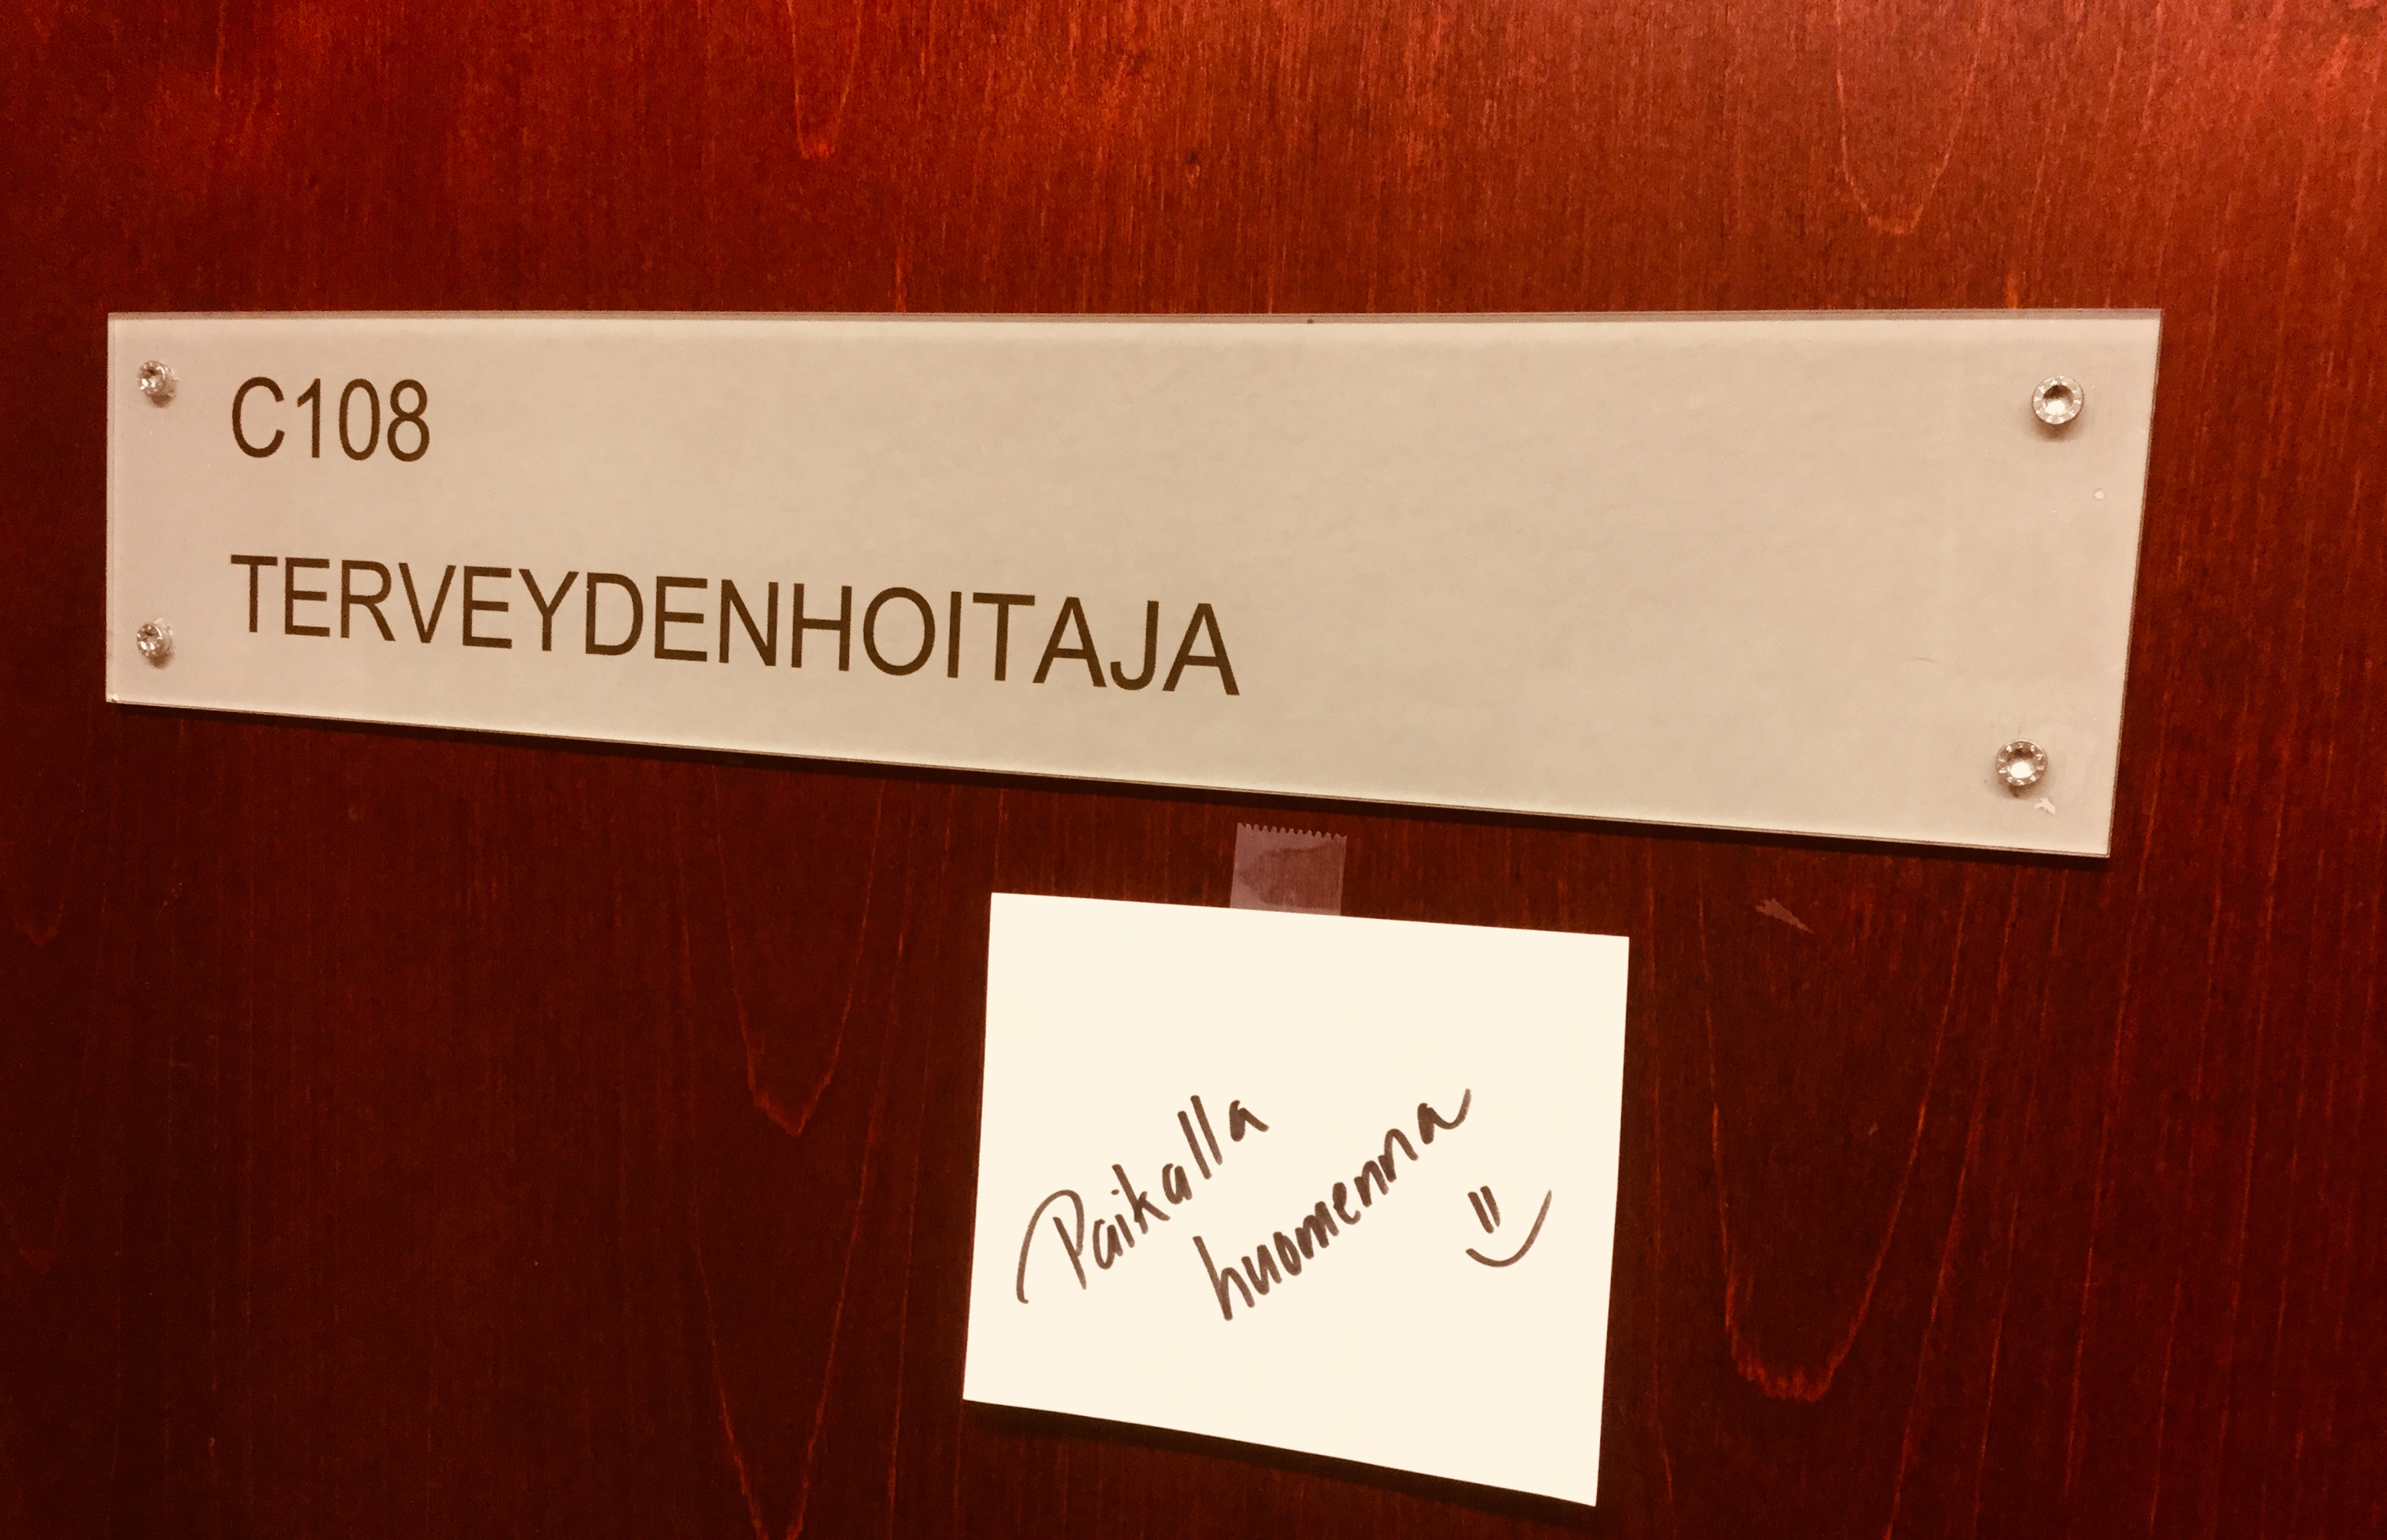 C108
TERVEYDENHOITAJA
Paikalla
huomenna
=)